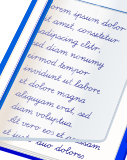 orem ipsum dolor
it amet, consetetur
adipscing elitr,
ed diam nonumy
eirmod tempor
invidunt ut labore
et dolore magna
aliquyam erat, sed
diam voluptua.
At vero eos et accusam
et justo duo dolores